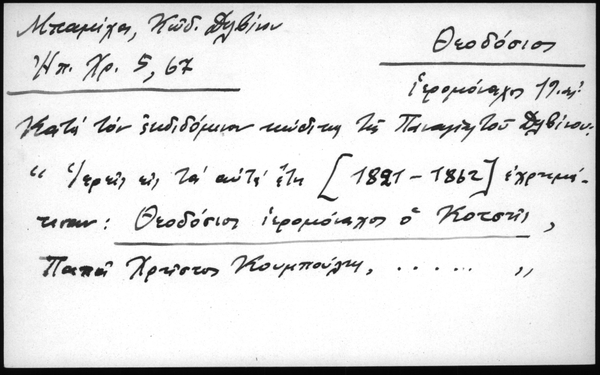 Μπαμίχα, Κώδ. Δελβίνου
Ἠπ. Χρ. 5, 67
Θεοδόσιος
ἱερομόναχος 19. αἰ.
Κατά τόν ἐκδιδόμενον κώδικα τῆς Παναγίας τοῦ Δελβίνου:
“ Ἱερεῖς εἰς τά αὐτά ἔτη [1821 – 1862] ἐχρημά-
τισαν: Θεοδόσιος ἱερομόναχος ὁ Κοτσής,
Παπᾶ Χρῆστος Κουμπούλης, . . . . . . ,,